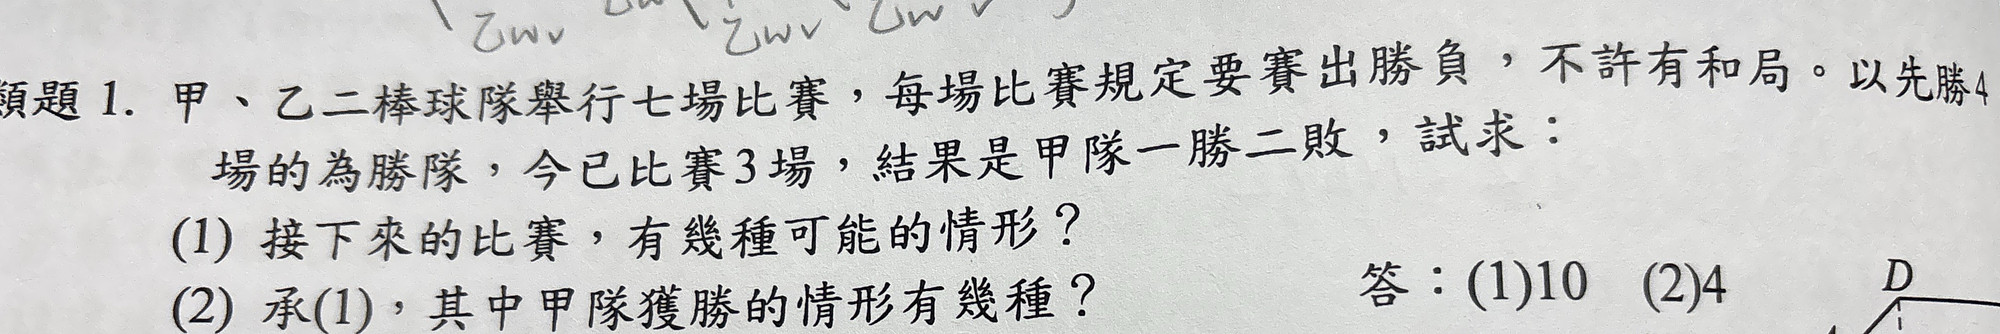 乙wv 乙wv 乙w v
類題 1. 甲、乙二棒球隊舉行七場比賽，每場比賽規定要賽出勝負，不許有和局。以先勝4
場的為勝隊，今已比賽3場，結果是甲隊一勝二敗，試求：
(1) 接下來的比賽，有幾種可能的情形？
(2) 承(1)，其中甲隊獲勝的情形有幾種？ 答：(1)10 (2)4
D